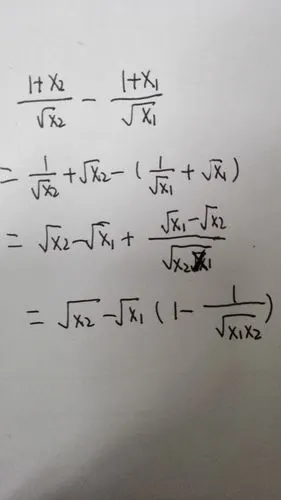 (1+x₂)/√x₂ − (1+x₁)/√x₁
= 1/√x₂ + √x₂ − (1/√x₁ + √x₁)
= √x₂ − √x₁ + (√x₁ − √x₂)/√(x₂x₁)
= √x₂ − √x₁ (1 − 1/√(x₁x₂))